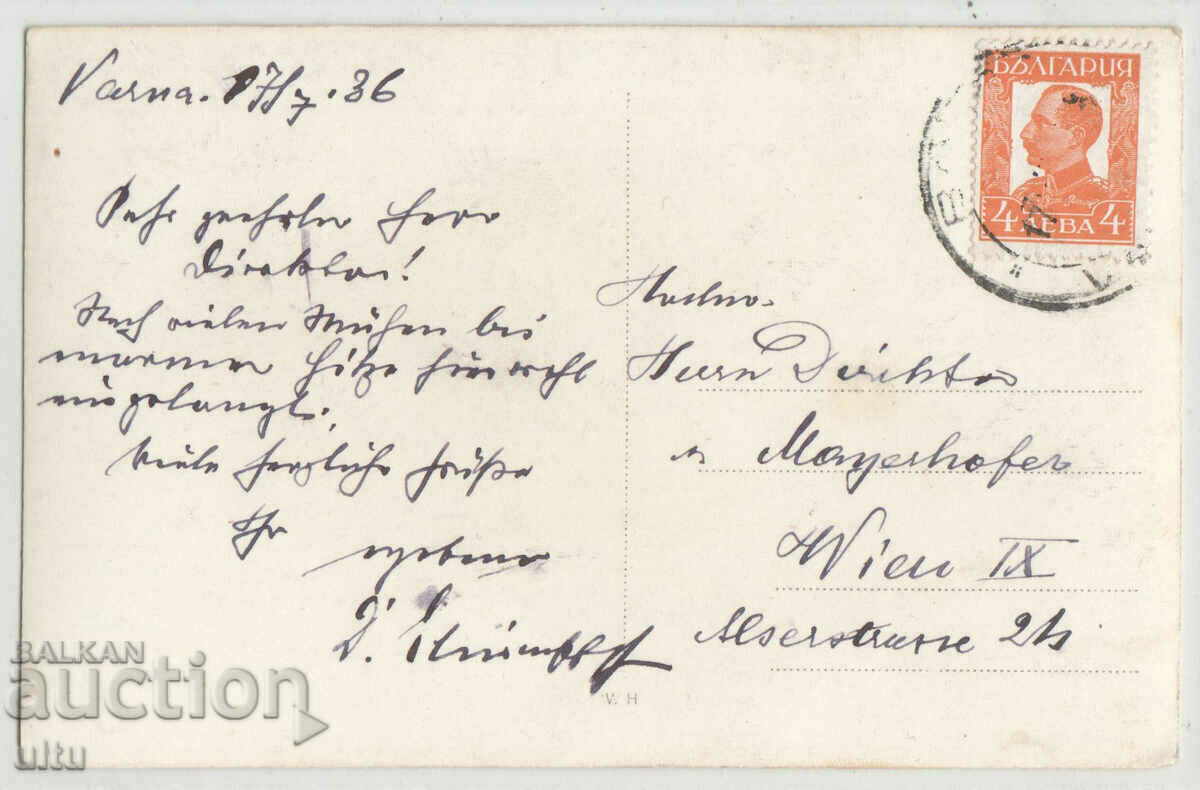 Varna. 17/7.36
Sehr geehrter Herr
Direktor!
Nach vielen Mühen bei
warmer Hitze hier
eingelangt.
Viele herzliche Grüße
Ihr ergebener
D.
БЪЛГАРИЯ
4 ЛЕВА 4
Herrn Direktor
Mayerhofer
Wien IX
Alserstrasse
V. H
BALKAN
auction
ultu